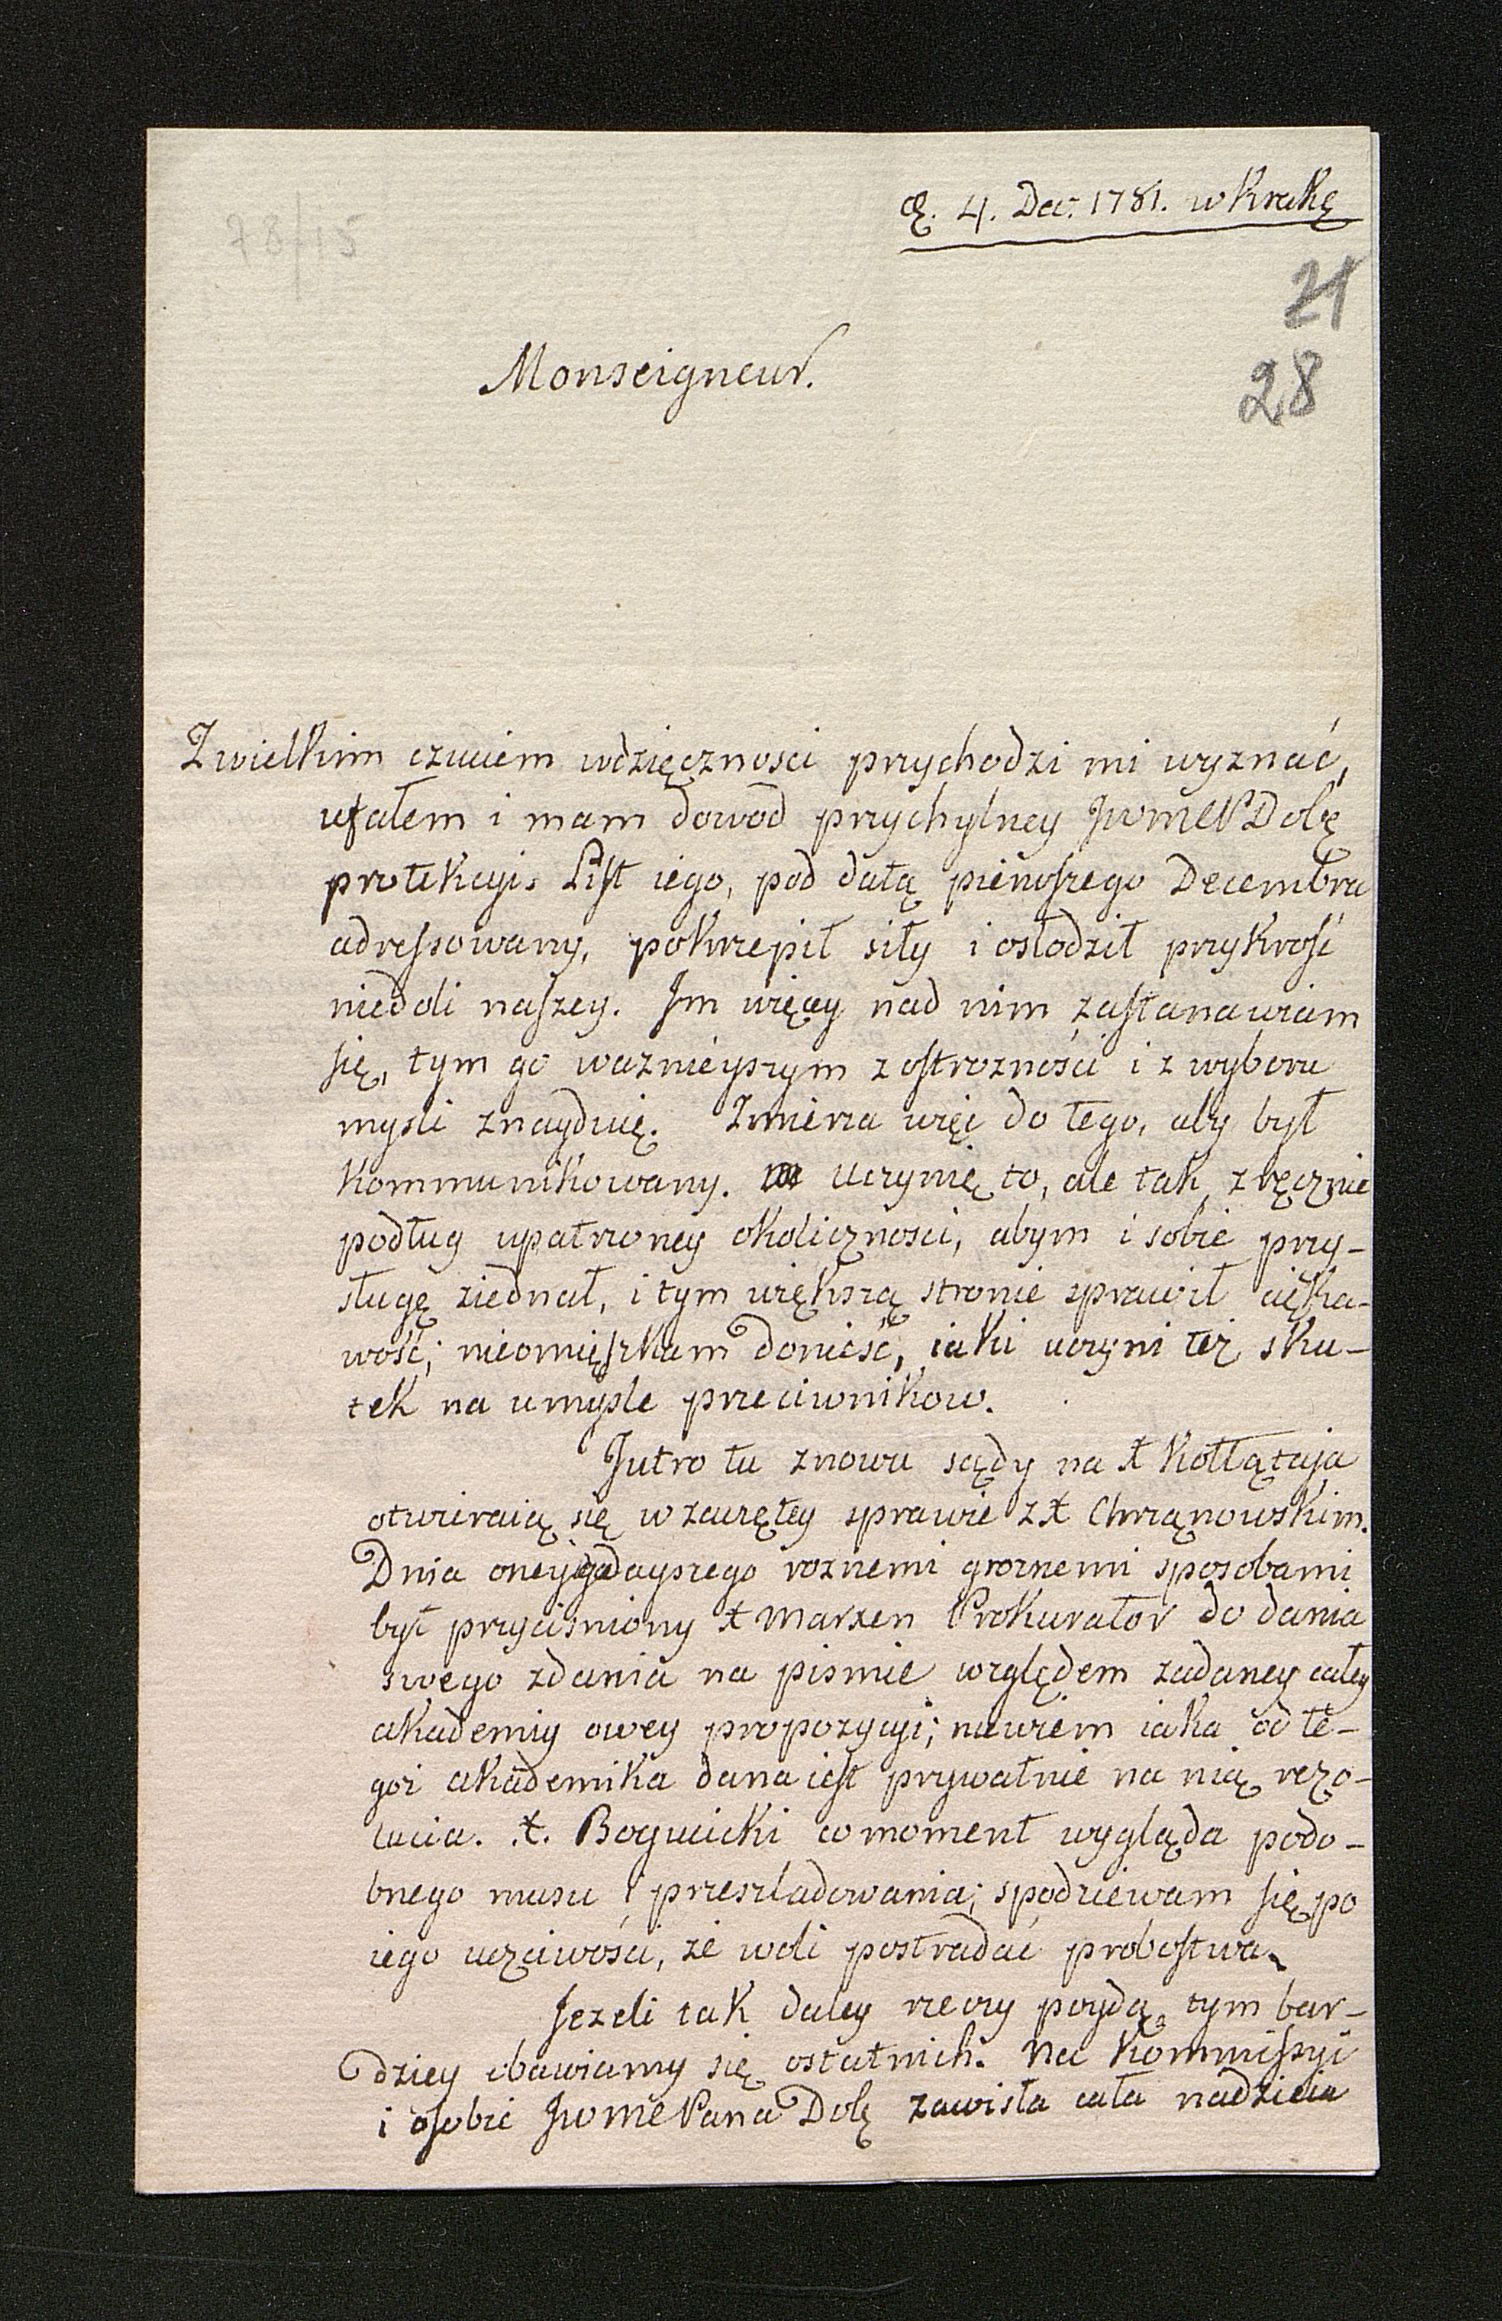 d. 4. Dec. 1781. w Krakę
78/15
21
28
Monseigneur.
Z wielkim czuciem wdzięcznosci przychodzi mi wyznać,
ufałem i mam dowod przychylney JWMCPDobę
protekcyi. List iego, pod datą pierwszego Decembra
adressowany, pokrzepił siły i osłodził przykrość
niedoli naszey. Im więcy nad nim zastanawiam
się, tym go waznieyszym z ostroznosci i z wyboru
mysli znayduię. Zmierza więc do tego, aby był
kommunikowany. Uczynię to, ale tak zręcznie
podług upatrzoney okolicznosci, abym i sobie przy-
sługę ziednał, i tym większą stronie sprawił cieka-
wość; nieomięszkam donieść, iaki uczyni też sku-
tek na umysle przeciwnikow.
Jutro tu znowu sądy na X Kołłątaja
otwieraią się w zawziętey sprawie z X Chrzanowskim.
Dnia oneygdayszego roznemi groznemi sposobami
był przycisniony X Marxen Prokurator do dania
swego zdania na pismie względem zadaney całey
akademiy owey propozycyi; niewiem iaka od te-
goż akademika dana iest prywatnie na nią rezo-
lucia. X. Bogucicki co moment wygląda podo-
bnego musu i przesladowania; spodziewam się po
iego uczciwosci, że woli postradać probostwa.
Jezeli tak daley rzeczy poydą, tym bar-
dziey obawiamy się ostatnich. Na Kommissyi
i osobie JWMCPana Dobę zawisła cała nadzieia